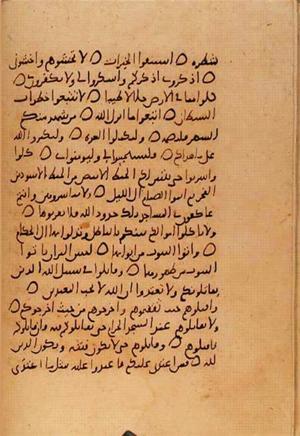 شطره ○ استبقوا الخيرات ○ لا تخشوهم واخشون
○ اذكروني اذكركم واشكروا لي ولا تكفرون ○
كلوا مما في الارض حلالا طيبا ○ لا تتبعوا خطوات
الشيطان ○ اتبعوا ما انزل الله ○ من شهد منكم
الشهر فليصمه ○ ولتكملوا العدة ○ ولتكبروا الله
على ما هداكم ○ فليستجيبوا لي وليومنوا بي ○ كلوا
واشربوا حتى يتبين لكم الخيط الابيض من الخيط الاسود من
الفجر ثم اتموا الصيام الى الليل ○ لا تباشروهن وانتم
عاكفون في المساجد تلك حدود الله فلا تقربوها ○
ولا تاكلوا اموالكم بينكم بالباطل وتدلوا بها الى الحكام
○ واتوا البيوت من ابوابها ○ ليس البر بان تاتوا
البيوت من ظهورها ○ وقاتلوا في سبيل الله الذين
يقاتلونكم ولا تعتدوا ان الله لا يحب المعتدين ○
واقتلوهم حيث ثقفتموهم واخرجوهم من حيث اخرجوكم ○
ولا تقاتلوهم عند المسجد الحرام حتى يقاتلوكم فيه فان قاتلوكم
فاقتلوهم ○ وقاتلوهم حتى لا تكون فتنة ويكون الدين
لله ○ فمن اعتدى عليكم فاعتدوا عليه مثل ما اعتدى